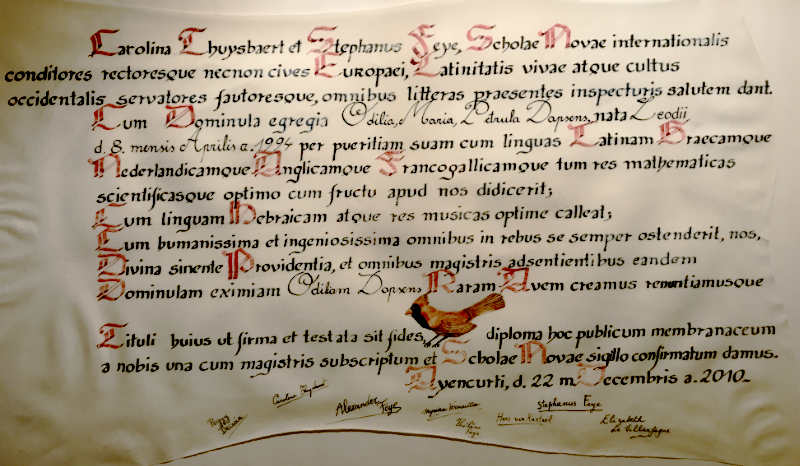 Carolina Thuysbaert et Stephanus Feye, Scholae Novae internationalis
conditores rectoresque necnon cives Europaei, Latinitatis vivae atque cultus
occidentalis servatores fautoresque, omnibus litteras praesentes inspecturis salutem dant.
Cum Dominula egregia Odilia, Maria, Petrula Dapsens, nata Leodii
d. 8. mensis Aprilis a. 1994 per pueritiam suam cum linguas Latinam Graecamque
Nederlandicamque Anglicamque Francogallicamque tum res mathematicas
scientificasque optimo cum fructu apud nos didicerit;
Cum linguam Hebraicam atque res musicas optime calleat;
Cum humanissima et ingeniosissima omnibus in rebus se semper ostenderit, nos,
Divina sinente Providentia, et omnibus magistris adsentientibus eandem
Dominulam eximiam Odiliam Dapsens Raram Avem creamus renuntiamusque
Tituli huius ut firma et testata sit fides, diploma hoc publicum membranaceum
a nobis una cum magistris subscriptum et Scholae Novae sigillo confirmatum damus.
Ayencurti, d. 22 m. Decembris a. 2010.
Alexander Feye
Stephanus Feye